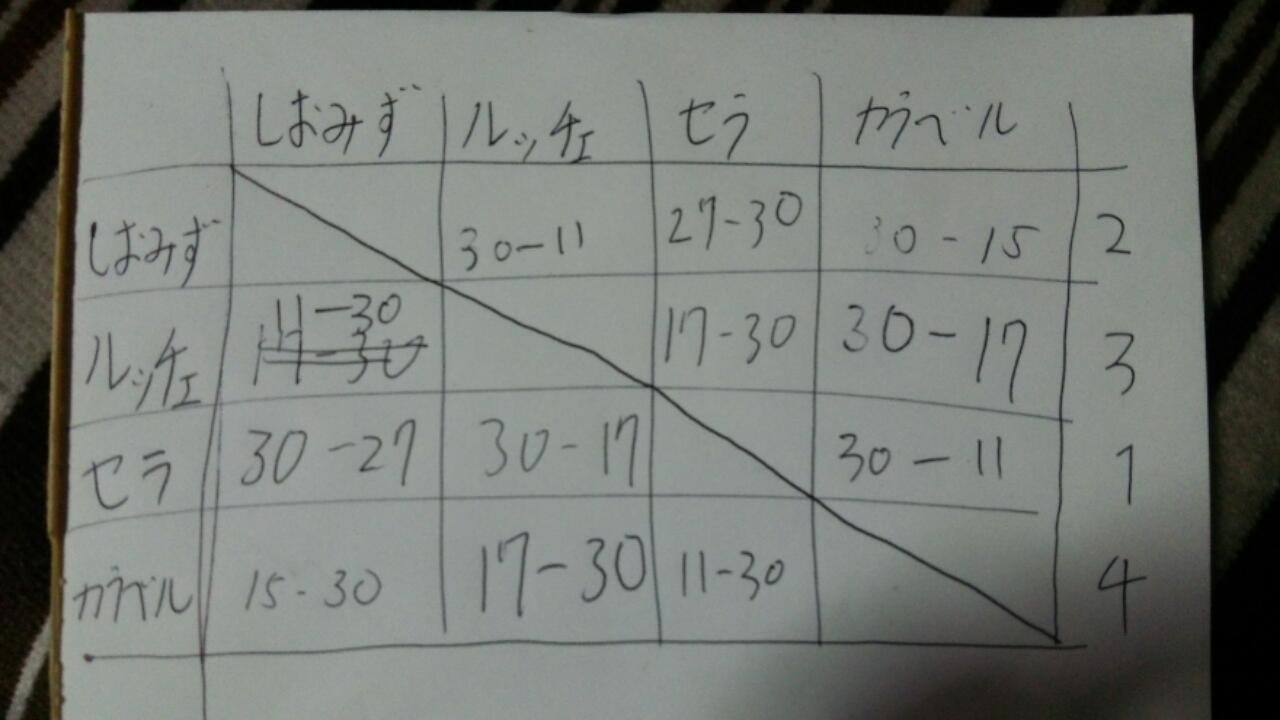 しおみず ルッチェ セラ カラベル
しおみず 30-11 27-30 30-15 2
ルッチェ 11-30 17-30 30-17 3
17-30
セラ 30-27 30-17 30-11 1
カラベル 15-30 17-30 11-30 4